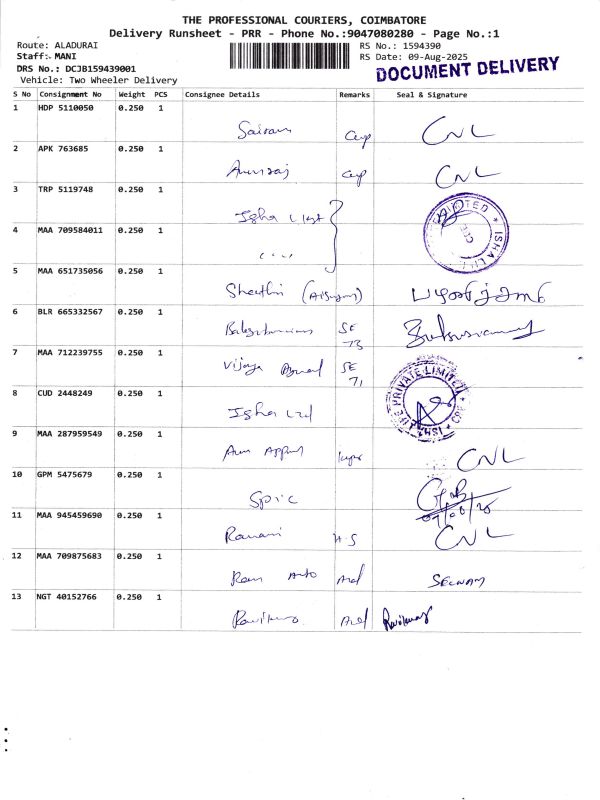 THE PROFESSIONAL COURIERS, COIMBATORE
Delivery Runsheet - PRR - Phone No.:9047080280 - Page No.:1
Route: ALADURAI
RS No.: 1594390
Staff:- MANI
RS Date: 09-Aug-2025
DRS No.: DCJB159439001
DOCUMENT DELIVERY
Vehicle: Two Wheeler Delivery
S No Consignment No Weight PCS Consignee Details Remarks Seal & Signature
1 HDP 5110050 0.250 1
Sairam CNL
2 APK 763685 0.250 1
CNL
3 TRP 5119748 0.250 1
Isha
4 MAA 709584011 0.250 1
5 MAA 651735056 0.250 1
6 BLR 665332567 0.250 1
SE
73
7 MAA 712239755 0.250 1
Vijaya SE
71
8 CUD 2448249 0.250 1
Isha Ltd
PRIVATE LIMITED
9 MAA 287959549 0.250 1
CNL
10 GPM 5475679 0.250 1
Spic
09/08/25
11 MAA 945459690 0.250 1
Ramani H.S CNL
12 MAA 709875683 0.250 1
Ram Auto SELVAM
13 NGT 40152766 0.250 1